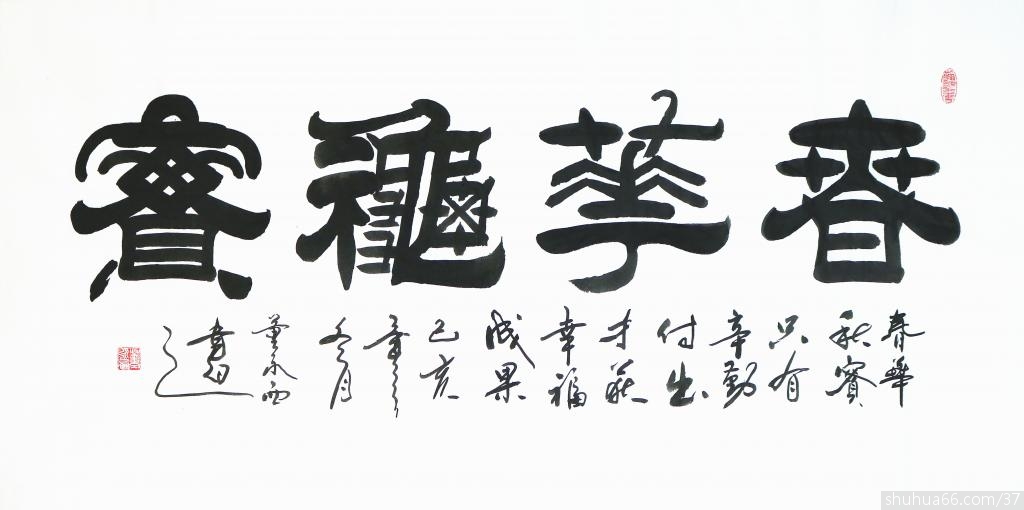 春華龝實
春華
秋實
只有
辛勤
付出
才获
幸福
成果
己亥
年
冬月
董永西
書
shuhua66.com/37